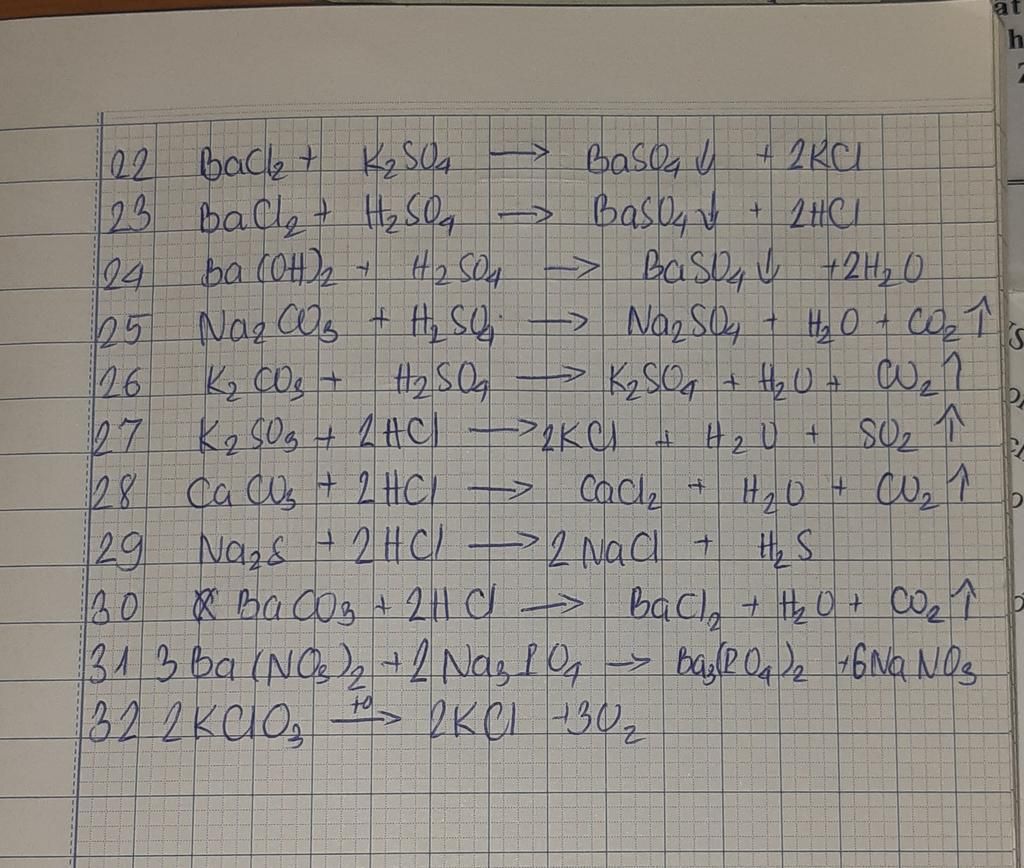 22 BaCl₂ + K₂SO₄ → BaSO₄↓ + 2KCl
23 BaCl₂ + H₂SO₄ → BaSO₄↓ + 2HCl
24 Ba(OH)₂ + H₂SO₄ → BaSO₄↓ +2H₂O
25 Na₂CO₃ + H₂SO₄ → Na₂SO₄ + H₂O + CO₂↑
26 K₂CO₃ + H₂SO₄ → K₂SO₄ + H₂O + CO₂↑
27 K₂SO₃ + 2HCl → 2KCl + H₂O + SO₂↑
28 CaCO₃ + 2HCl → CaCl₂ + H₂O + CO₂↑
29 Na₂S + 2HCl → 2NaCl + H₂S
30 BaCO₃ + 2HCl → BaCl₂ + H₂O + CO₂↑
31 3Ba(NO₃)₂ + 2Na₃PO₄ → Ba₃(PO₄)₂ +6NaNO₃
32 2KClO₃ →(t⁰) 2KCl +3O₂